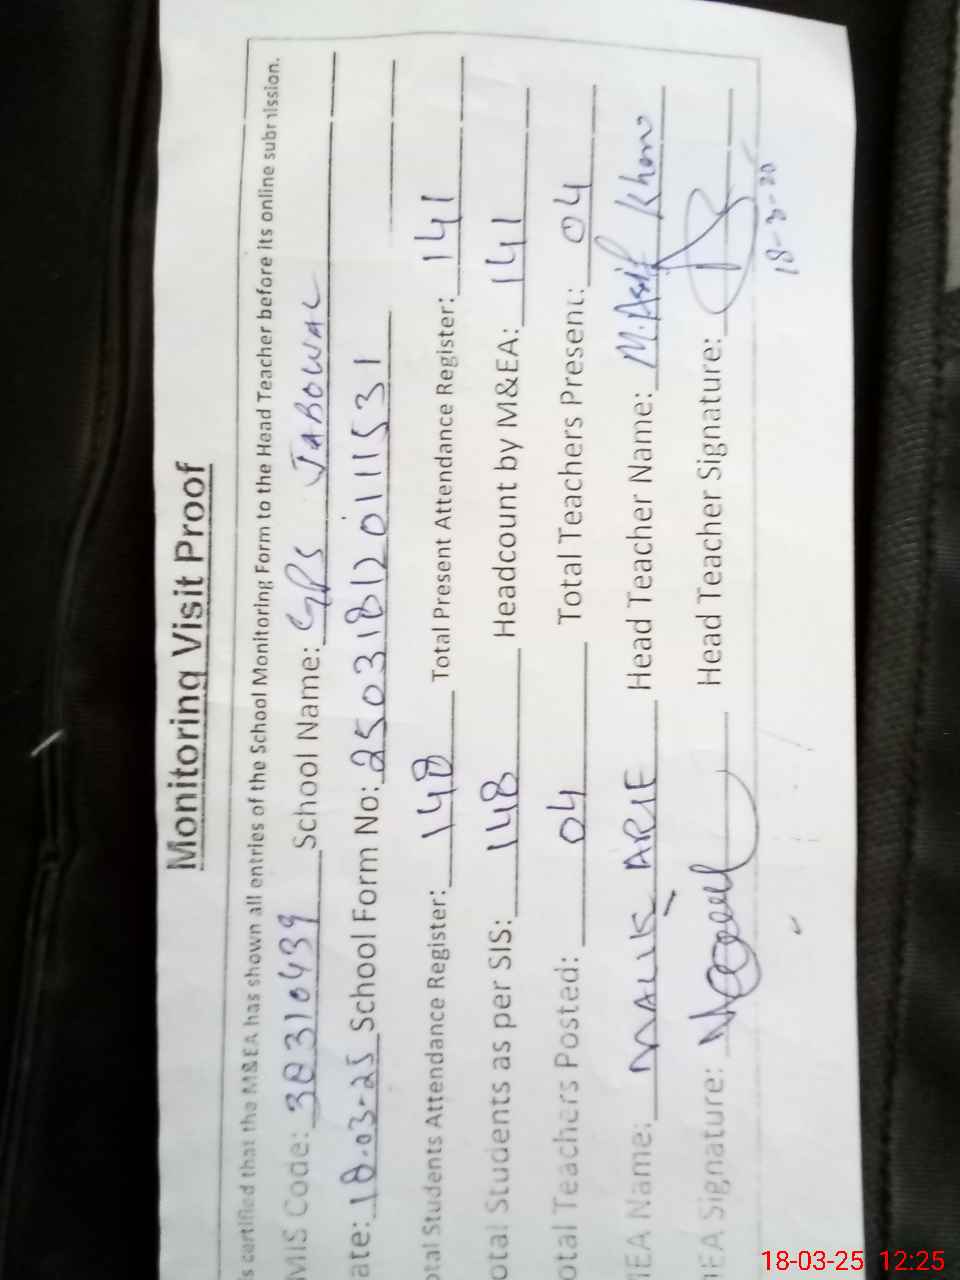 Monitoring Visit Proof
s certified that the M&EA has shown all entries of the School Monitoring Form to the Head Teacher before its online submission.
MIS Code: 38310439 School Name: GPS JABOWAL
ate: 18-03-25 School Form No: 250318120111531
otal Students Attendance Register: 148 Total Present Attendance Register: 141
otal Students as per SIS: 148 Headcount by M&EA: 141
otal Teachers Posted: 04 Total Teachers Present: 04
MEA Name: MALIK Head Teacher Name: M. Asif Khan
MEA Signature: Head Teacher Signature:
18-03-25 12:25